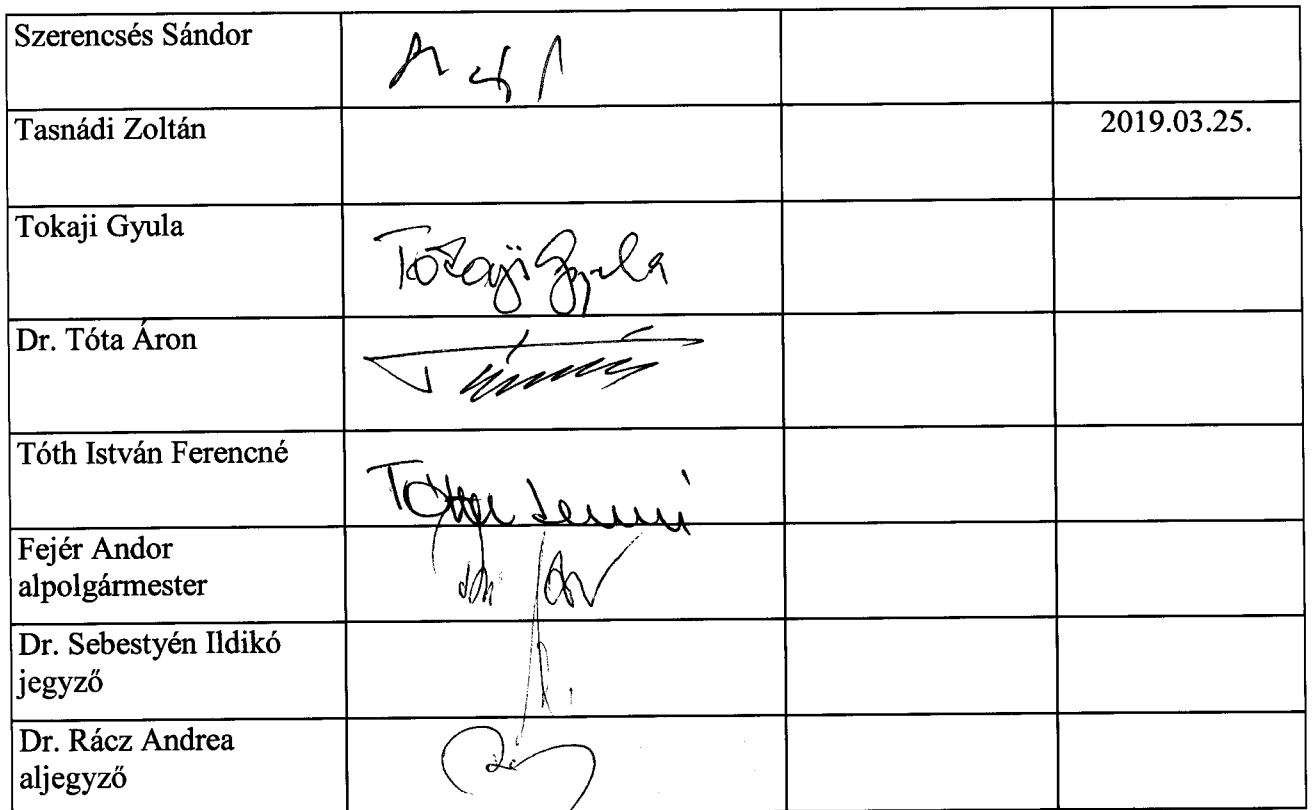 Szerencsés Sándor
Tasnádi Zoltán
2019.03.25.
Tokaji Gyula
Tokaji Gyula
Dr. Tóta Áron
Tóth István Ferencné
Fejér Andor
alpolgármester
Dr. Sebestyén Ildikó
jegyző
Dr. Rácz Andrea
aljegyző